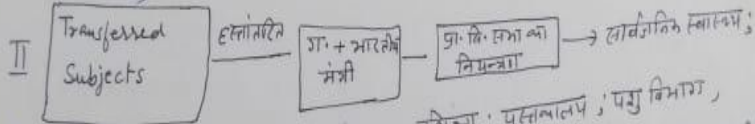 II Transferred Subjects हस्तांतरित ग. + भारतीय मंत्री प्रा. वि. सभा का नियन्त्रण → सार्वजनिक स्वास्थ्य,
पुस्तकालय, पशु विभाग,